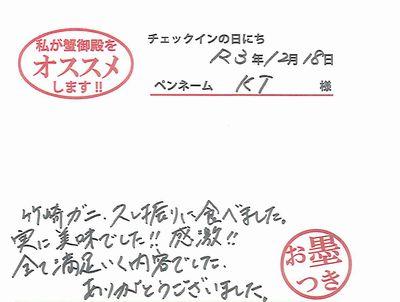 私が蟹御殿を
オススメ
します!!
チェックインの日にち
R3年12月18日
ペンネーム KT 様
竹崎ガニ、久し振りに食べました。
実に美味でした!! 感激!!
全て満足いく内容でした。
ありがとうございました。
お墨
つき